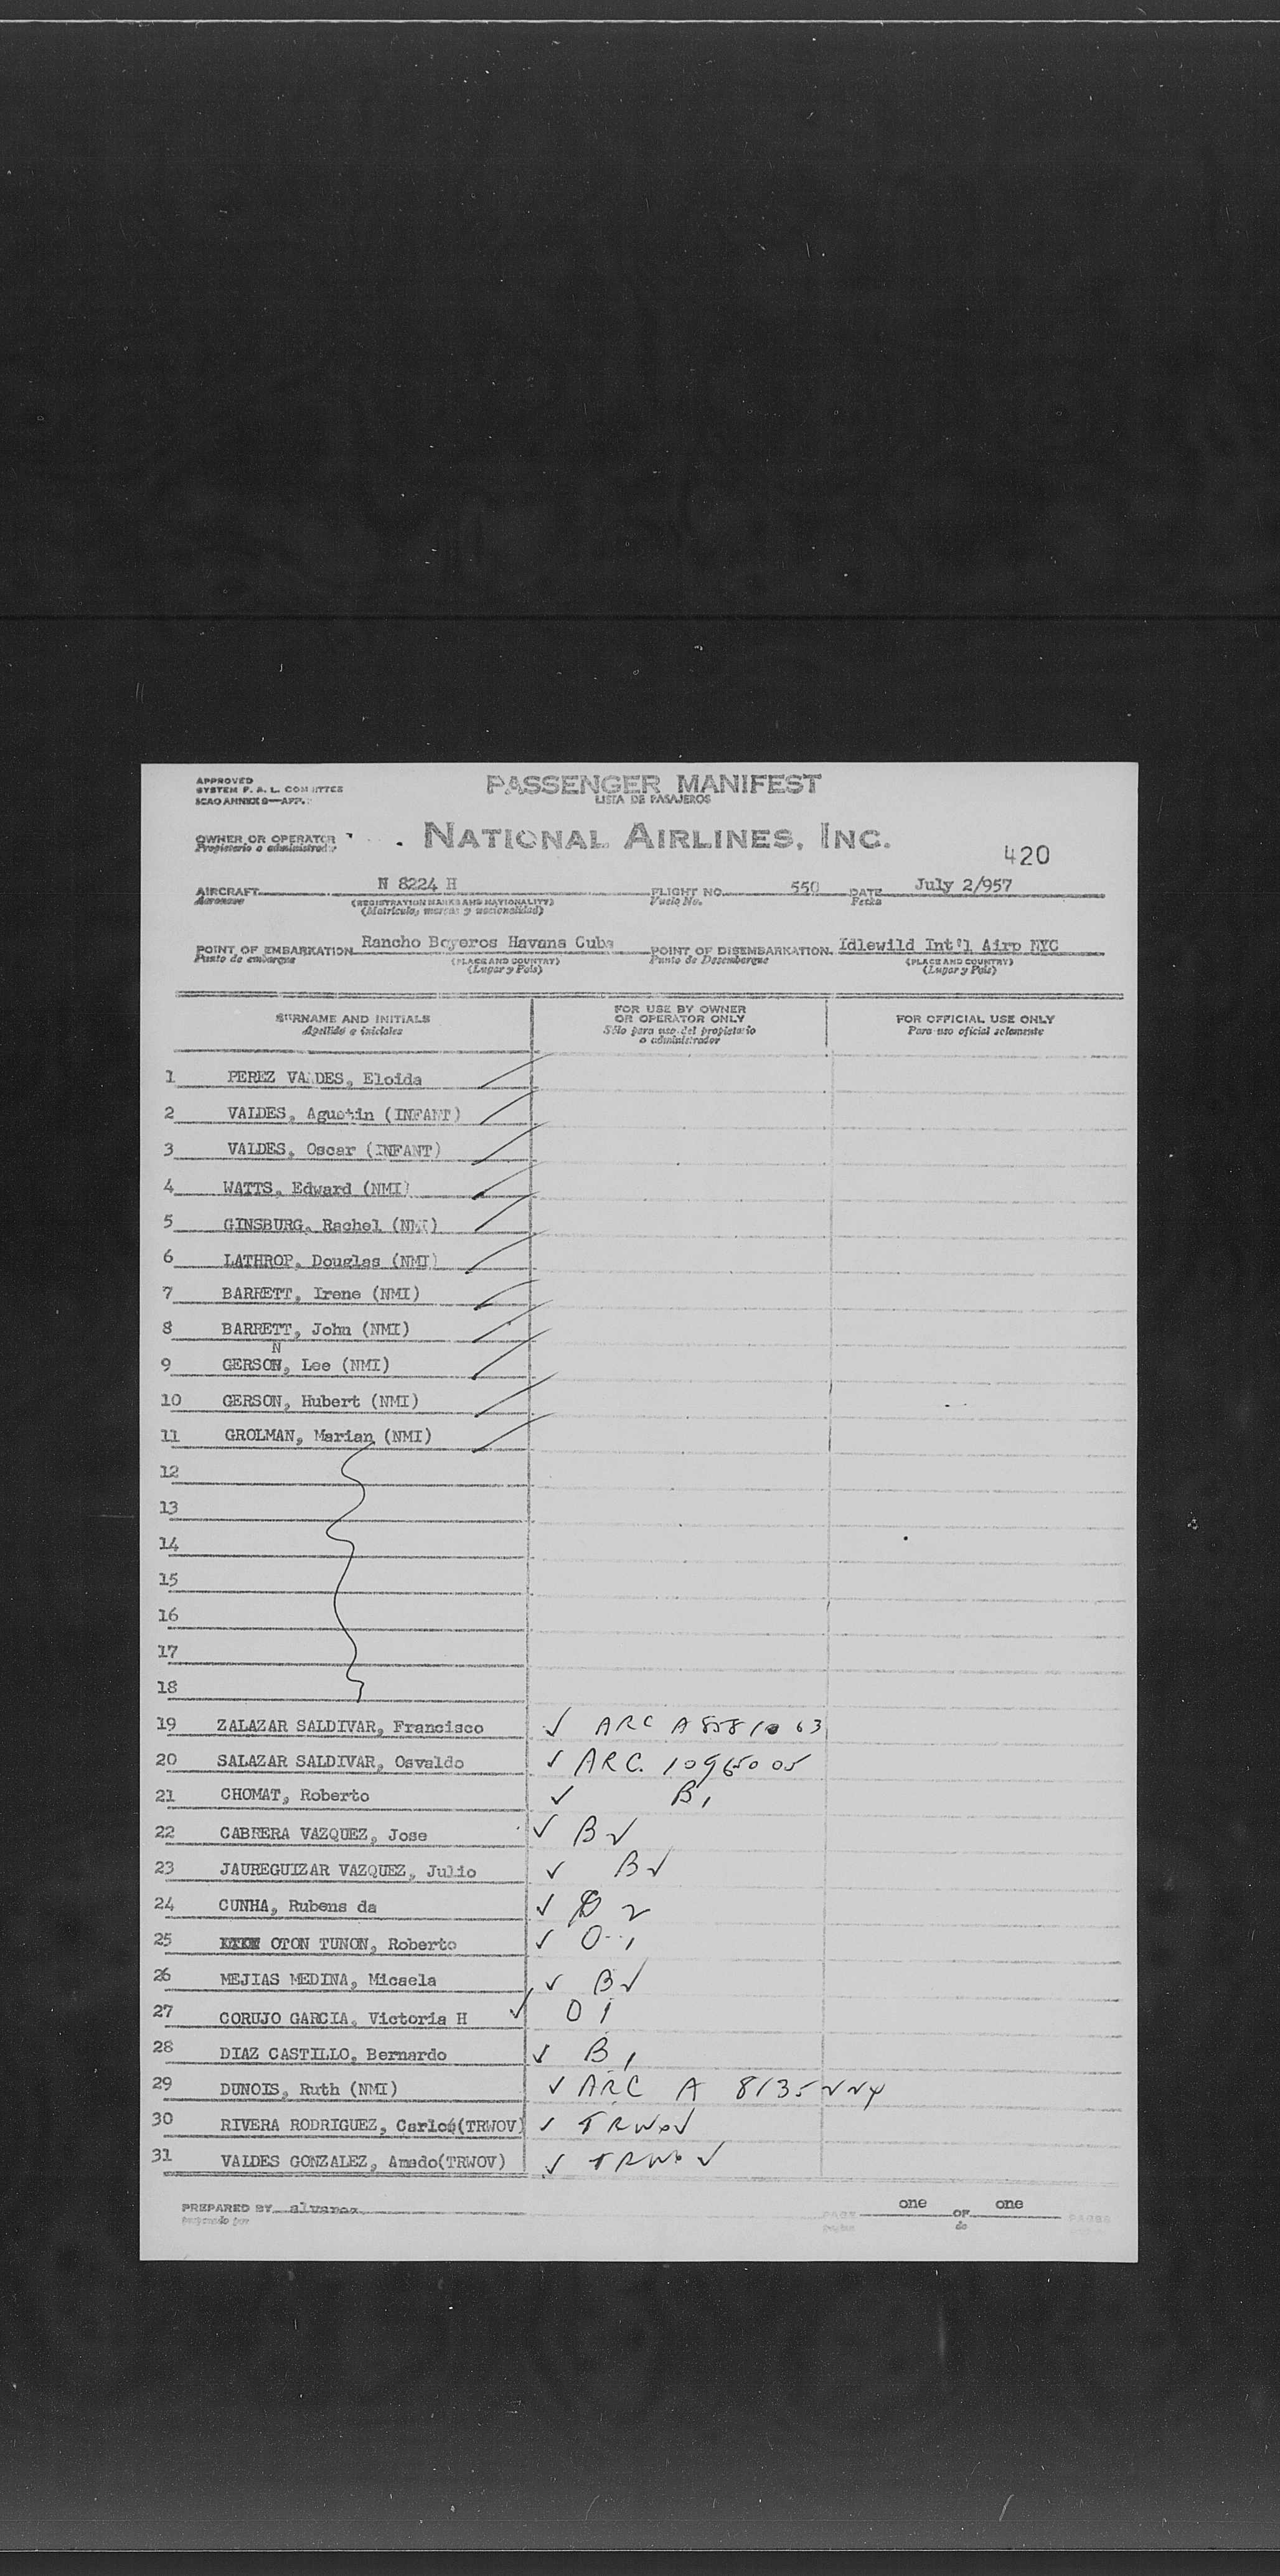 APPROVED
SYSTEM F. A. L. COMMITTEE
ICAO ANNEX 9—APP.
PASSENGER MANIFEST
LISTA DE PASAJEROS
OWNER OR OPERATOR
Propietario o administrador
NATIONAL AIRLINES, INC.
420
AIRCRAFT N 8224 H FLIGHT NO. 550 DATE July 2/957
Aeronave (REGISTRATION MARKS AND NATIONALITY) Vuelo No. Fecha
(Matricula, marcas y nacionalidad)
POINT OF EMBARKATION Rancho Boyeros Havana Cuba POINT OF DISEMBARKATION Idlewild Int'l Airp NYC
Punto de embarque (PLACE AND COUNTRY) Punto de Desembarque (PLACE AND COUNTRY)
(Lugar y País) (Lugar y País)
SURNAME AND INITIALS
Apellido e iniciales
FOR USE BY OWNER
OR OPERATOR ONLY
Sólo para uso del propietario
o administrador
FOR OFFICIAL USE ONLY
Para uso oficial solamente
1 PEREZ VALDES, Eloida
2 VALDES, Agustin (INFANT)
3 VALDES, Oscar (INFANT)
4 WATTS, Edward (NMI)
5 GINSBURG, Rachel (NMI)
6 LATHROP, Douglas (NMI)
7 BARRETT, Irene (NMI)
8 BARRETT, John (NMI)
N
9 GERSON, Lee (NMI)
10 GERSON, Hubert (NMI)
11 GROLMAN, Marian (NMI)
12
13
14
15
16
17
18
19 ZALAZAR SALDIVAR, Francisco ✓ ARC
20 SALAZAR SALDIVAR, Osvaldo ✓ ARC. 10965005
21 CHOMAT, Roberto ✓ B1
22 CABRERA VAZQUEZ, Jose ✓ B2
23 JAUREGUIZAR VAZQUEZ, Julio ✓ B2
24 CUNHA, Rubens da ✓ 2
25 OTON TUNON, Roberto ✓ O-1
26 MEJIAS MEDINA, Micaela ✓ B2
27 CORUJO GARCIA, Victoria H ✓ O1
28 DIAZ CASTILLO, Bernardo ✓ B1
29 DUNOIS, Ruth (NMI) ✓ ARC A
30 RIVERA RODRIGUEZ, Carlos(TRWOV) ✓ TRWOV
31 VALDES GONZALEZ, Amado(TRWOV) ✓ TRWOV
PREPARED BY alvarez
preparado por
PAGE one OF one PAGES
de